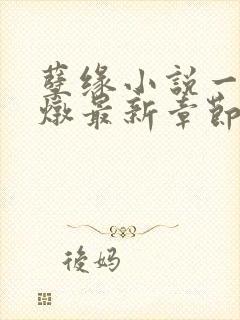 孽缘小説一
燉最新章節
後妈